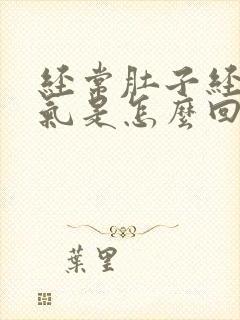 經常肚子經
氣是怎麼回
葉里